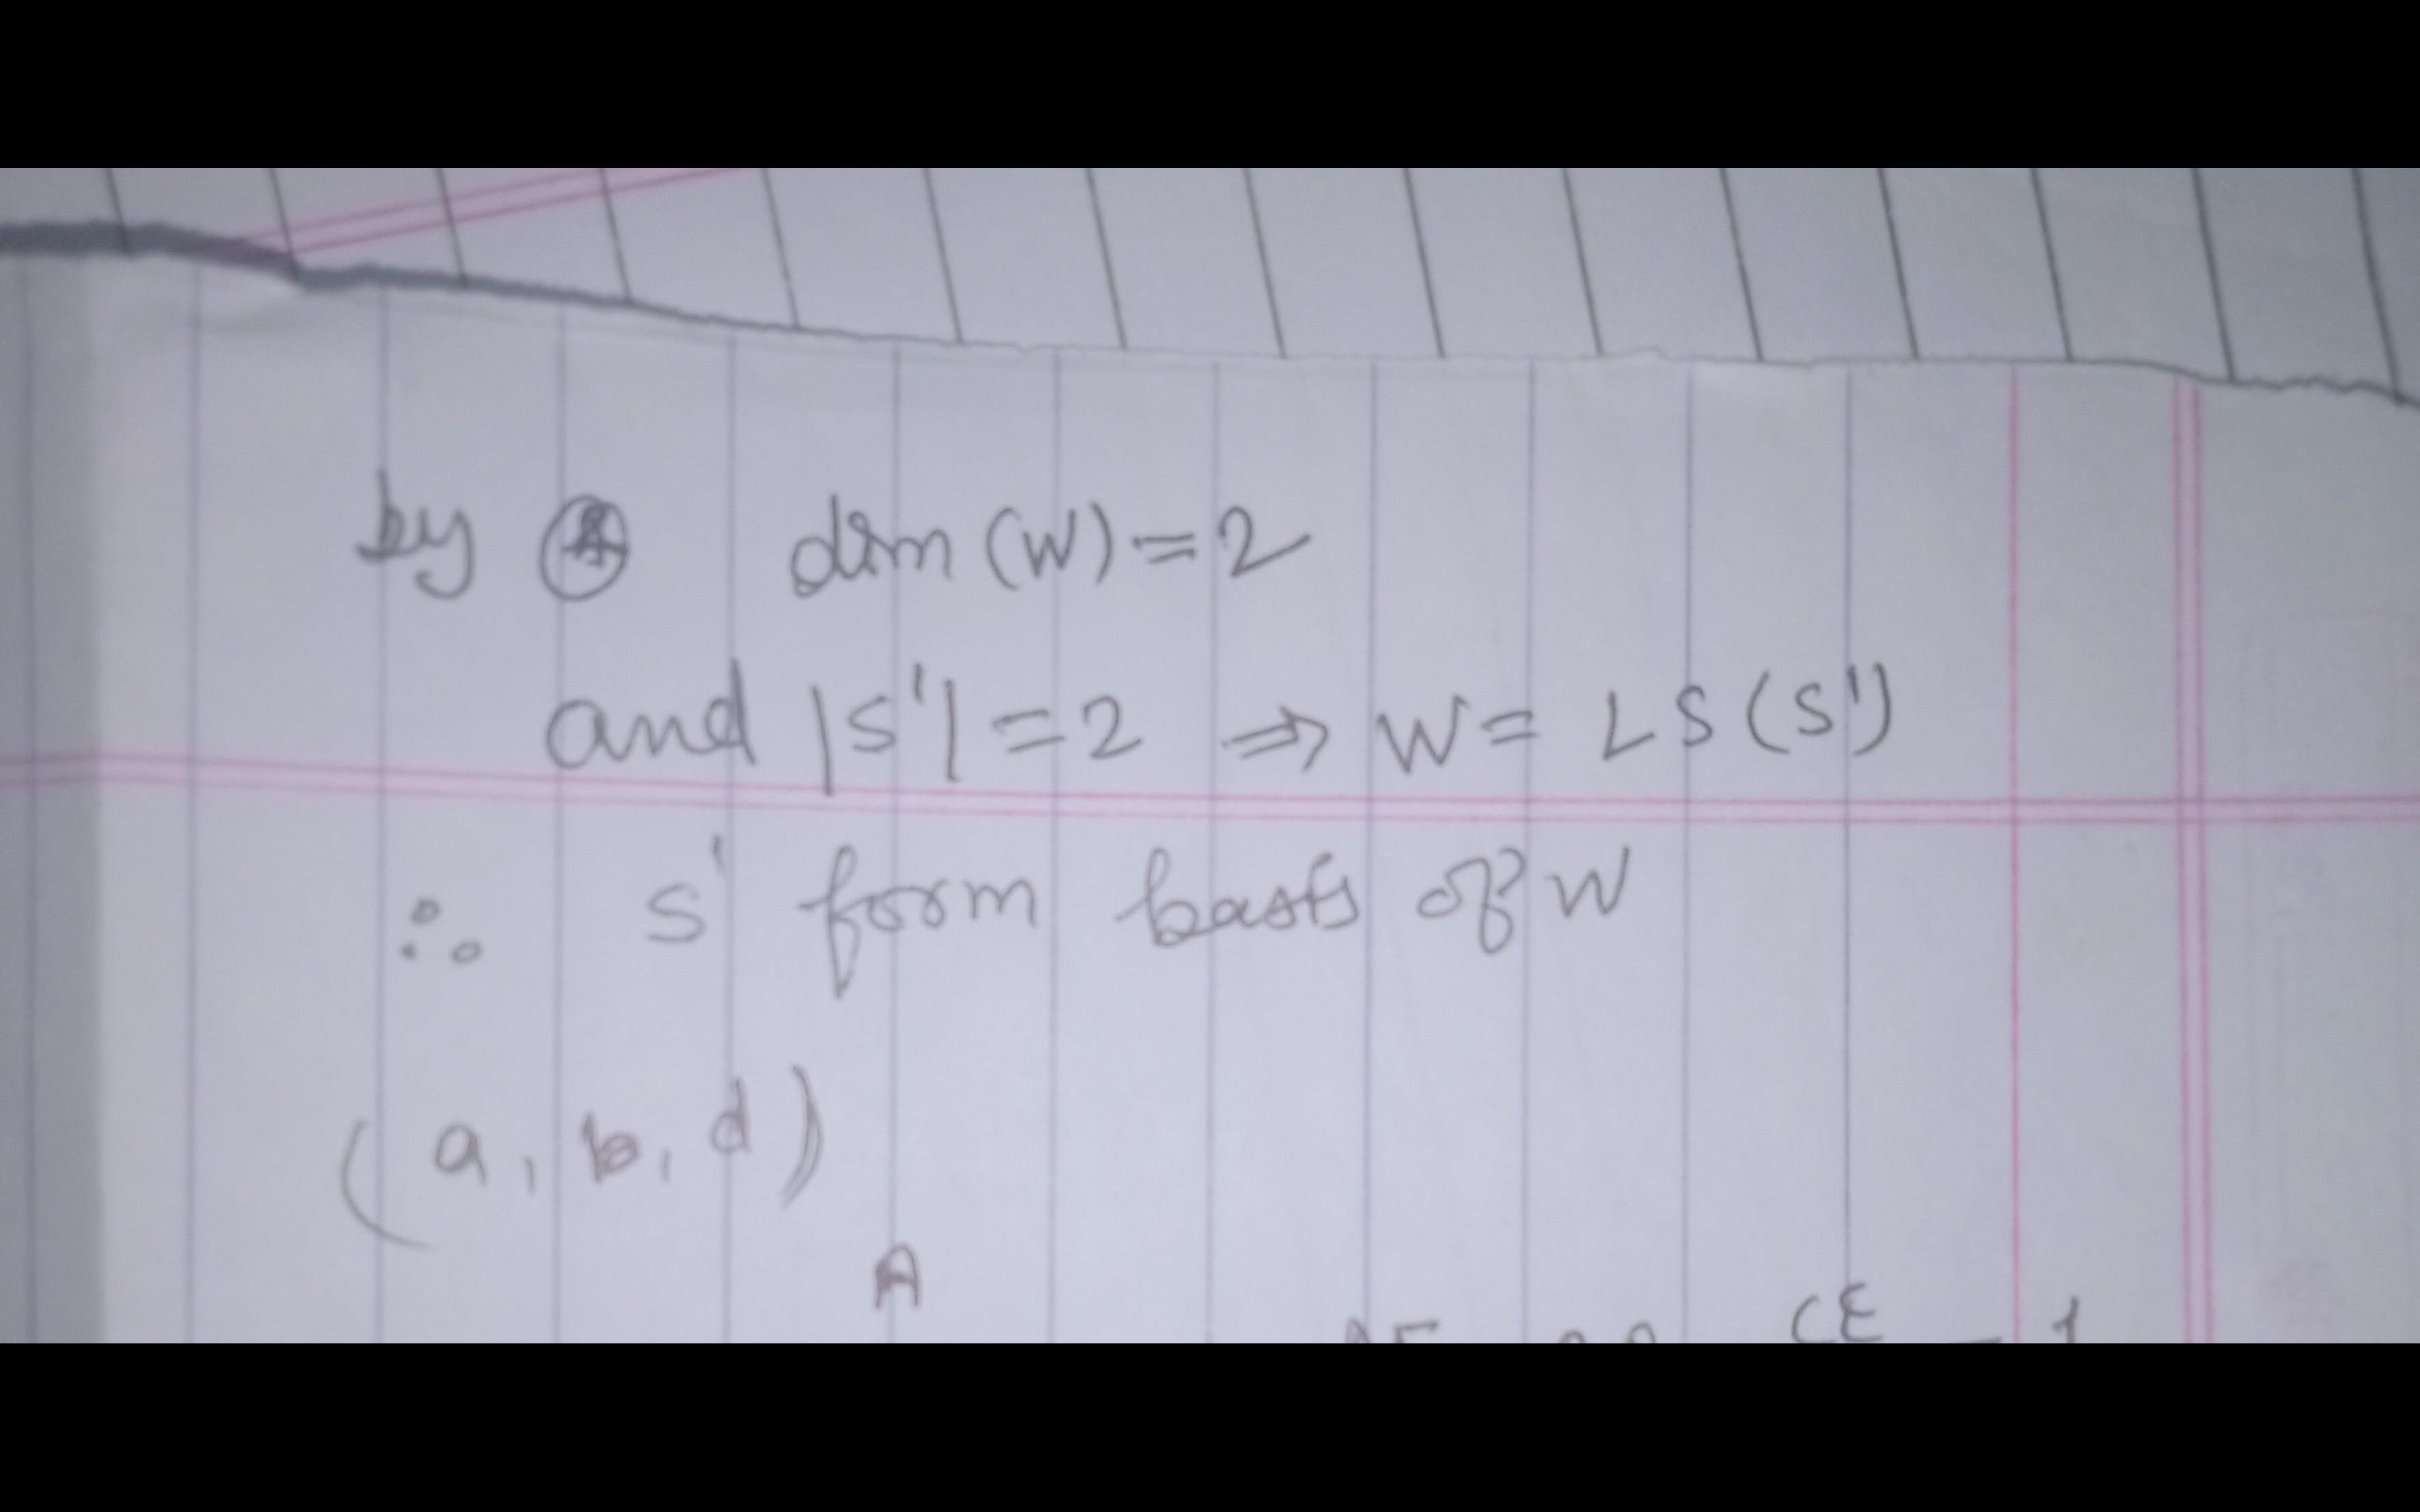 by ⊛ dim (W) = 2
and |S'| = 2 ⇒ W = LS(S')
∴ S' form basis of W
(a, b, d)
A
CE